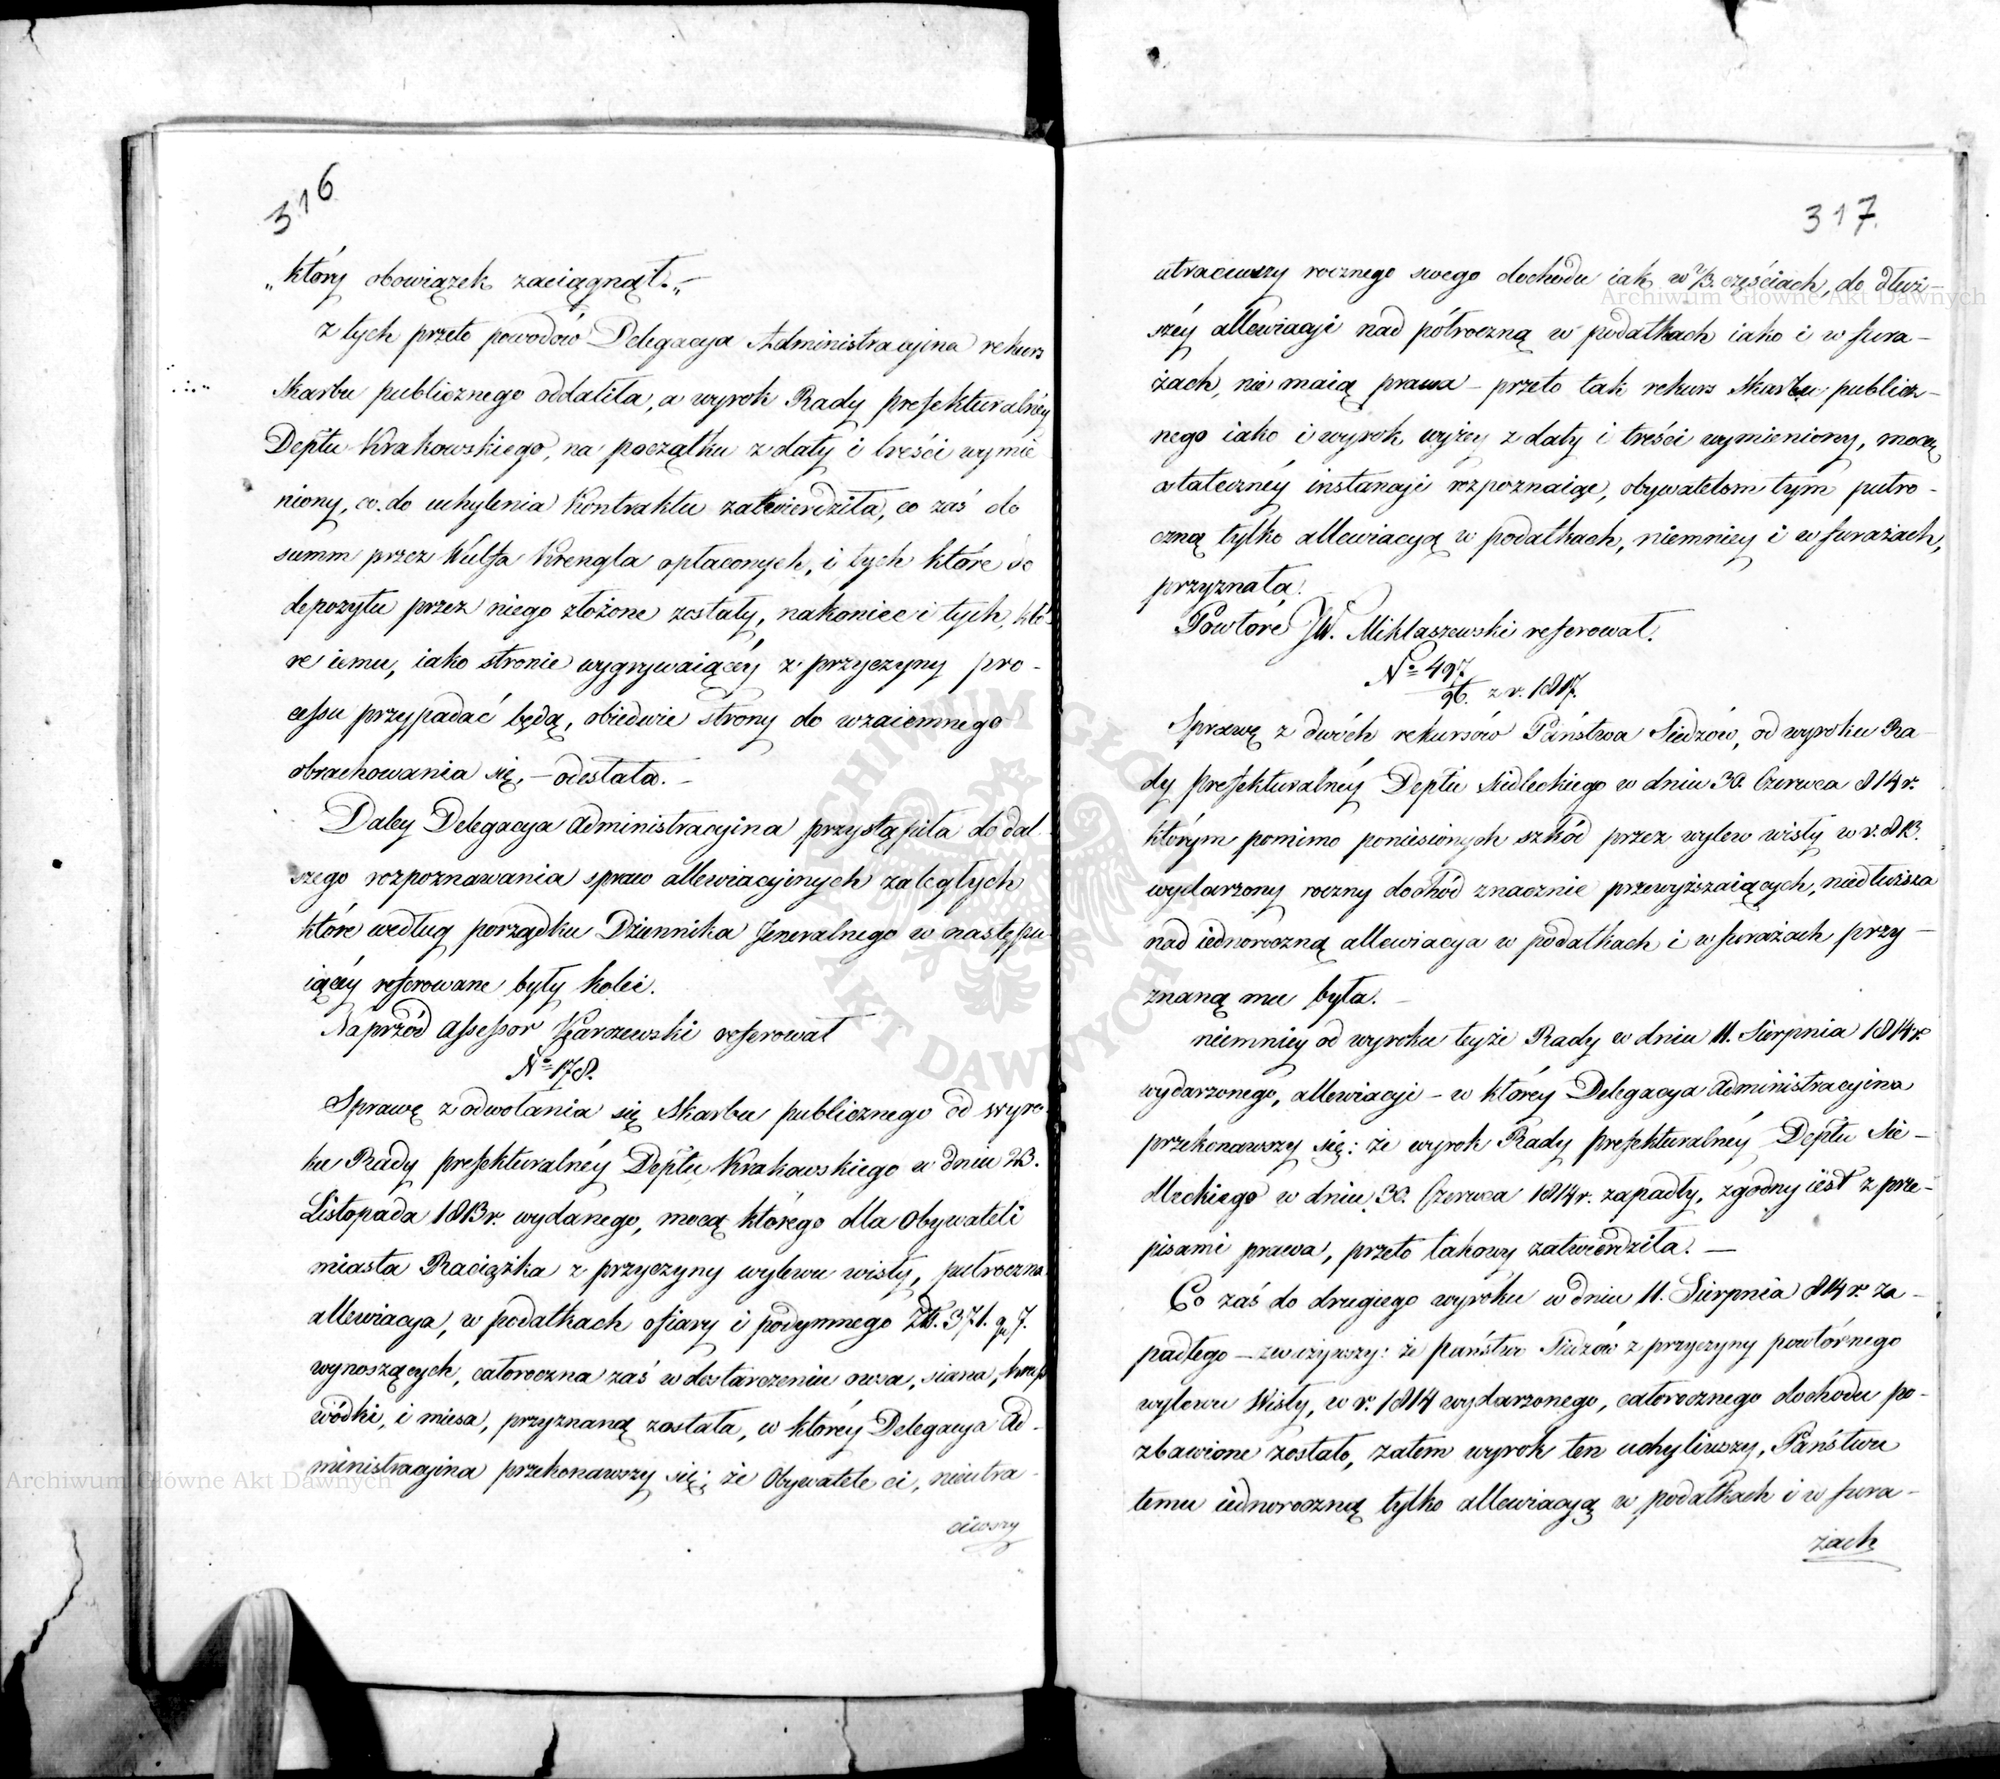 316
„który obowiązek zaciągnął.„–
z tych przeto powodów Delegacya Administracyina rekurs
Skarbu publicznego oddaliła, a wyrok Rady prefekturalnéy
Deptu Krakowskiego, na początku z daty i treści wymie
niony, co do uchylenia Kontraktu zatwierdziła, co zaś do
summ przez Wulfa Krengla opłaconych, i tych które do
depozytu przez niego złożone zostały, nakoniec i tych, któ-
re iemu, iako stronie wygrywaiącéy z przyczyny pro-
cessu przypadać będą, obiedwie strony do wzaiemnego
obrachowania się, – odesłała. –
Daley Delegacya Administracyina przystąpiła do dal
szego rozpoznawania spraw allewiacyinych zaległych
które według porządku Dziennika Jeneralnego w następu
iącéy referowane były kolei.
Naprzód Assessor Karczewski referował
No 178.
Sprawę z odwołania się Skarbu publicznego od wyro-
ku Rady prefekturalnéy Deptu Krakowskiego w dniu 23.
Listopada 1813 r. wydanego, mocą którego dla Obywateli
miasta Raciążka z przyczyny wylewu wisły, pułroczna
allewiacya, w podatkach ofiary i podymnego Zł. 371. gr 7.
wynoszących, całoroczna zaś w dostarczeniu owsa, siana,
wódki, i miesa, przyznaną została, w któréy Delegacya Ad-
ministracyina przekonawszy się; że Obywatele ci, nieutra-
ciwszy
317.
utraciwszy rocznego swego dochodu iak w 2/3 częściach, do dłuż-
széy allewiacyi nad półroczną w podatkach iako i w fura-
żach, nie maią prawa – przeto tak rekurs Skarbu publicz-
nego iako i wyrok wyżey z daty i treści wymieniony, mocą
ostatecznéy instancyi rozpoznaiąc, obywatelom tym pułro-
czną tylko allewiacyą w podatkach, niemniey i w furażach,
przyznała.
Powtóre JW. Miklaszewski referował.
No 497/96. z r. 1817.
Sprawę z dwóch rekursów Państwa Siedzów, od wyroku Ra-
dy prefekturalnéy Deptu Siedleckiego w dniu 30. Czerwca 814 r.
którym pomimo poniesionych szkód przez wylew wisły w r. 813.
wydarzony roczny dochód znacznie przewyższaiących, niedłuższa
nad iednoroczną allewiacya w podatkach i w furażach przy-
znaną mu była. –
niemniey od wyroku teyże Rady w dniu 11. Sierpnia 1814 r.
wydarzonego, allewiacyi – w którey Delegacya Administracyina
przekonawszy się: że wyrok Rady prefekturalnéy Deptu Sie-
dleckiego w dniu 30. Czerwca 1814 r. zapadły, zgodny iest z prze-
pisami prawa, przeto takowy zatwierdziła. –
Co zaś do drugiego wyroku w dniu 11. Sierpnia 814 r. za-
padłego – zważywszy: że państwo Siedzów z przyczyny powtórnego
wylewu Wisły, w r. 1814 wydarzonego, całorocznego dochodu po-
zbawione zostało, zatém wyrok ten uchyliwszy, Państwu
temu iednoroczną tylko allewiacyą w podatkach i w fura-
żach
Archiwum Główne Akt Dawnych
Archiwum Główne Akt Dawnych
ARCHIWUM GŁÓWNE AKT DAWNYCH